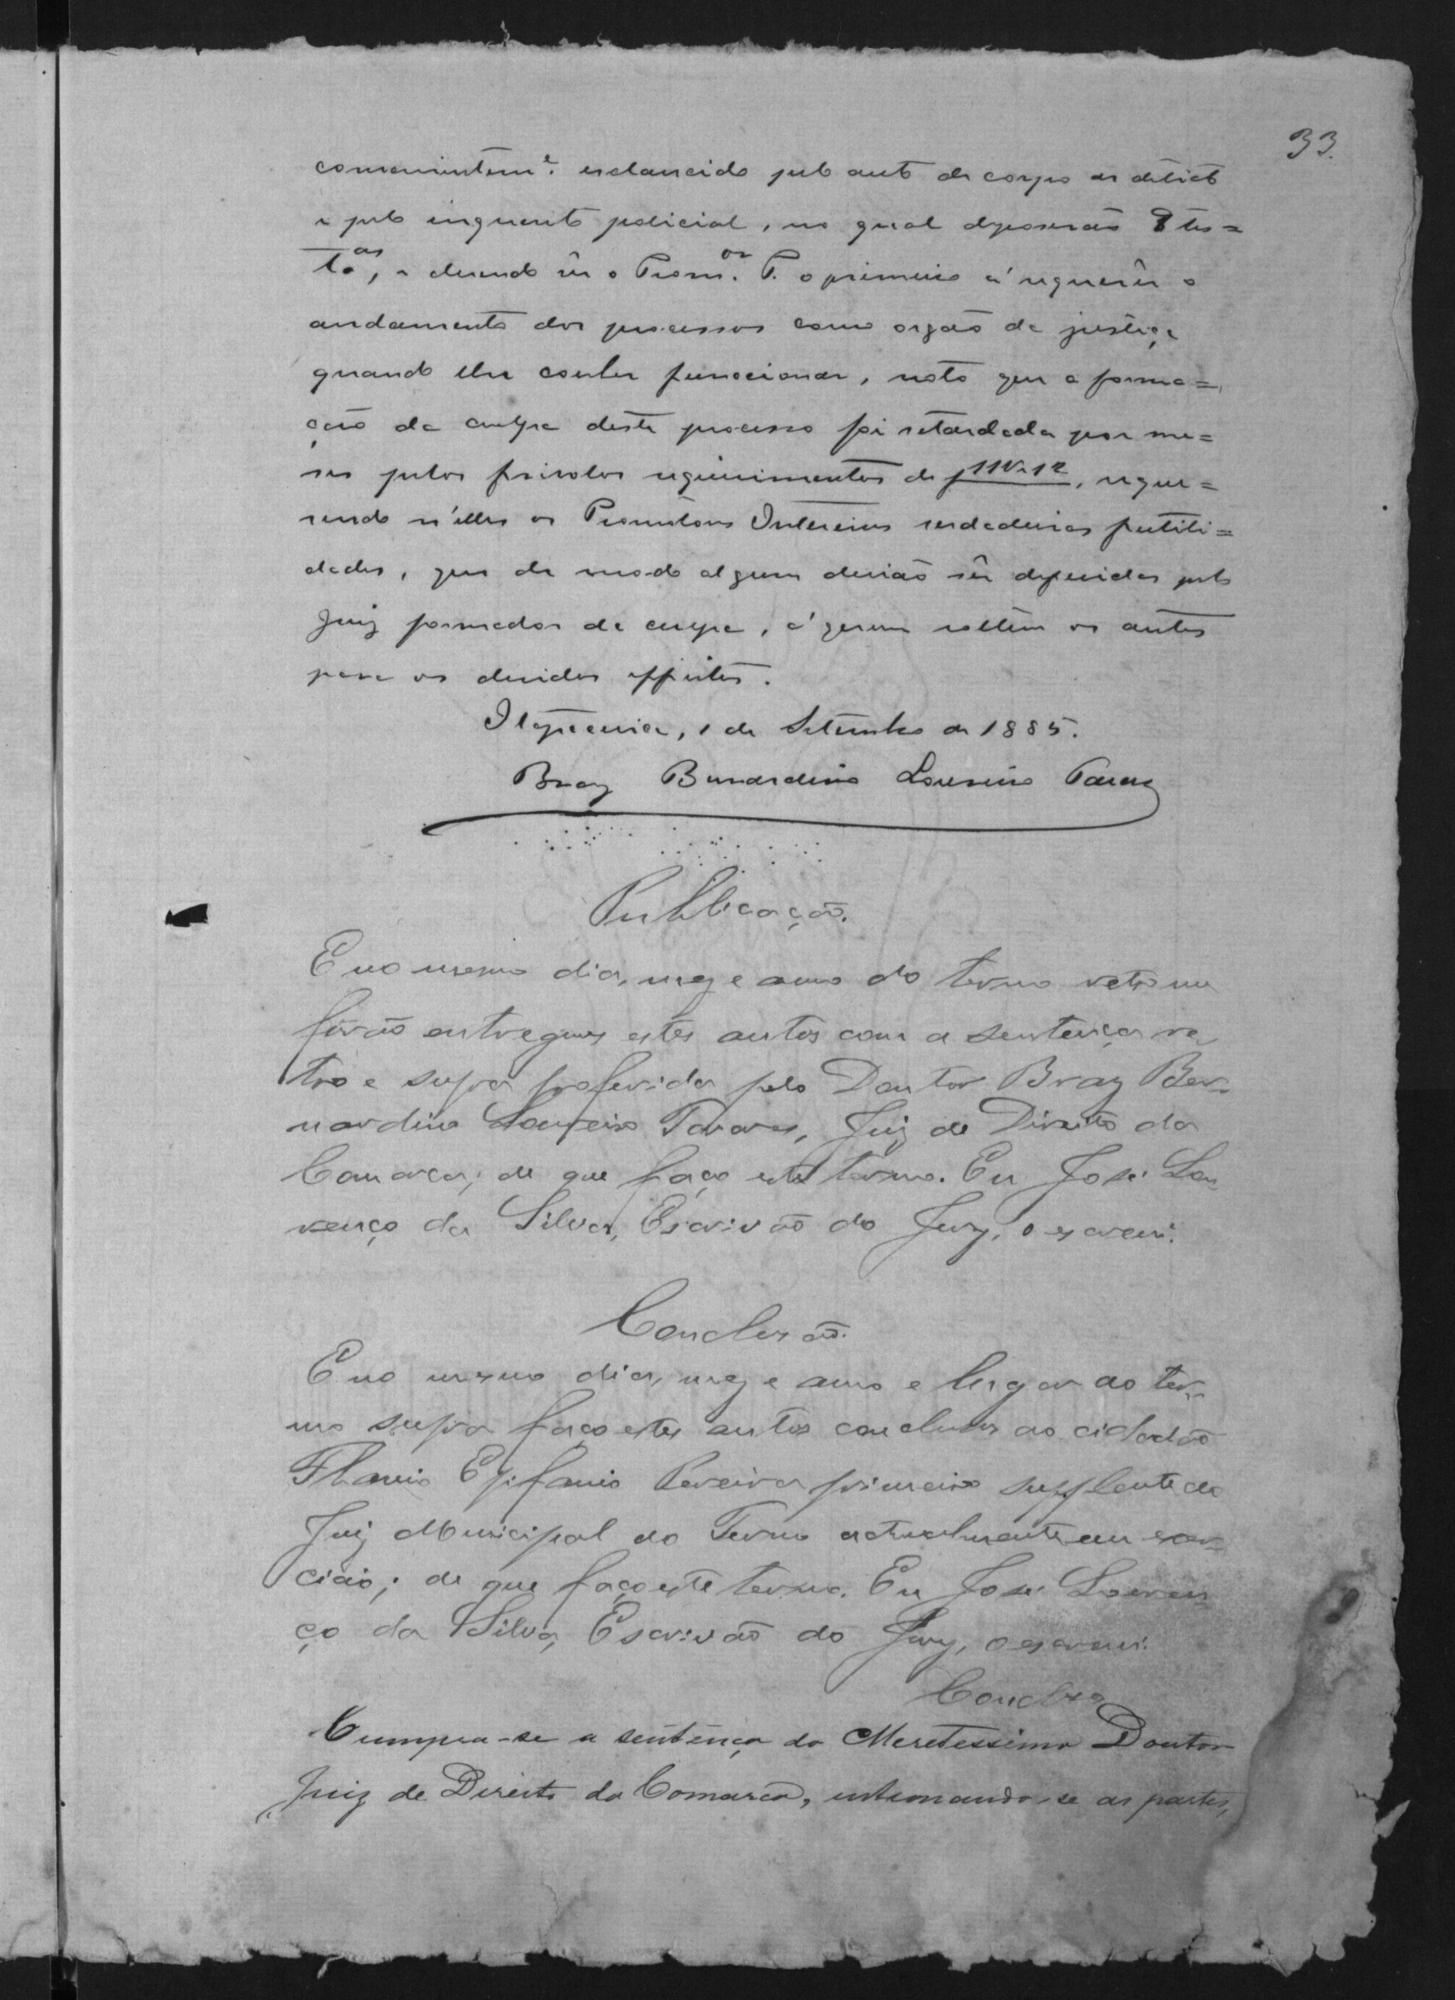 33.
convenientem.e esclarecido pelo auto de corpo de delicto
e pelo inquerito policial, no qual deposerão 8 tes=
tas, e devendo sêr o Prom.or P. o primeiro á requerêr o
andamento dos processos como orgão da justiça
quando lhe couber funccionar, noto que a forma=
ção da culpa deste processo foi retardada por me=
ses pelos frivolos requerimentos de f 11 V. 12, reque=
rendo n'elles os Promotores Interinos verdadeiras futili=
dades, que de modo algum devião sêr deferidas pelo
Juiz formador da culpa, á quem voltem os autos
para os devidos effeitos.
1 de Setembro de 1885.
Braz Bernardino Loureiro Tavares
Publicação.
E no mesmo dia, mez e anno do termo retro me
fôrão entregues estes autos com a sentença re
tro e supra proferida pelo Doutor Braz Ber-
nardino Loureiro Tavares, Juiz de Direito da
Comarca; de que faço este termo. Eu José Lou
renço da Silva, Escrivão do Jury, o escrevi.
Conclusão.
E no mesmo dia, mez e anno e lugar do ter-
mo supra faço estes autos conclusos ao cidadão
Flavio Epifanio Pereira primeiro supplente do
Juiz Municipal do Termo actualmente em exer-
cicio; de que faço este termo. Eu José Louren
ço da Silva, Escrivão do Jury, o escrevi.
Conclzo
Cumpra-se a sentença do Meretessimo Doutor
Juiz de Direito da Comarca, intimando-se as partes,